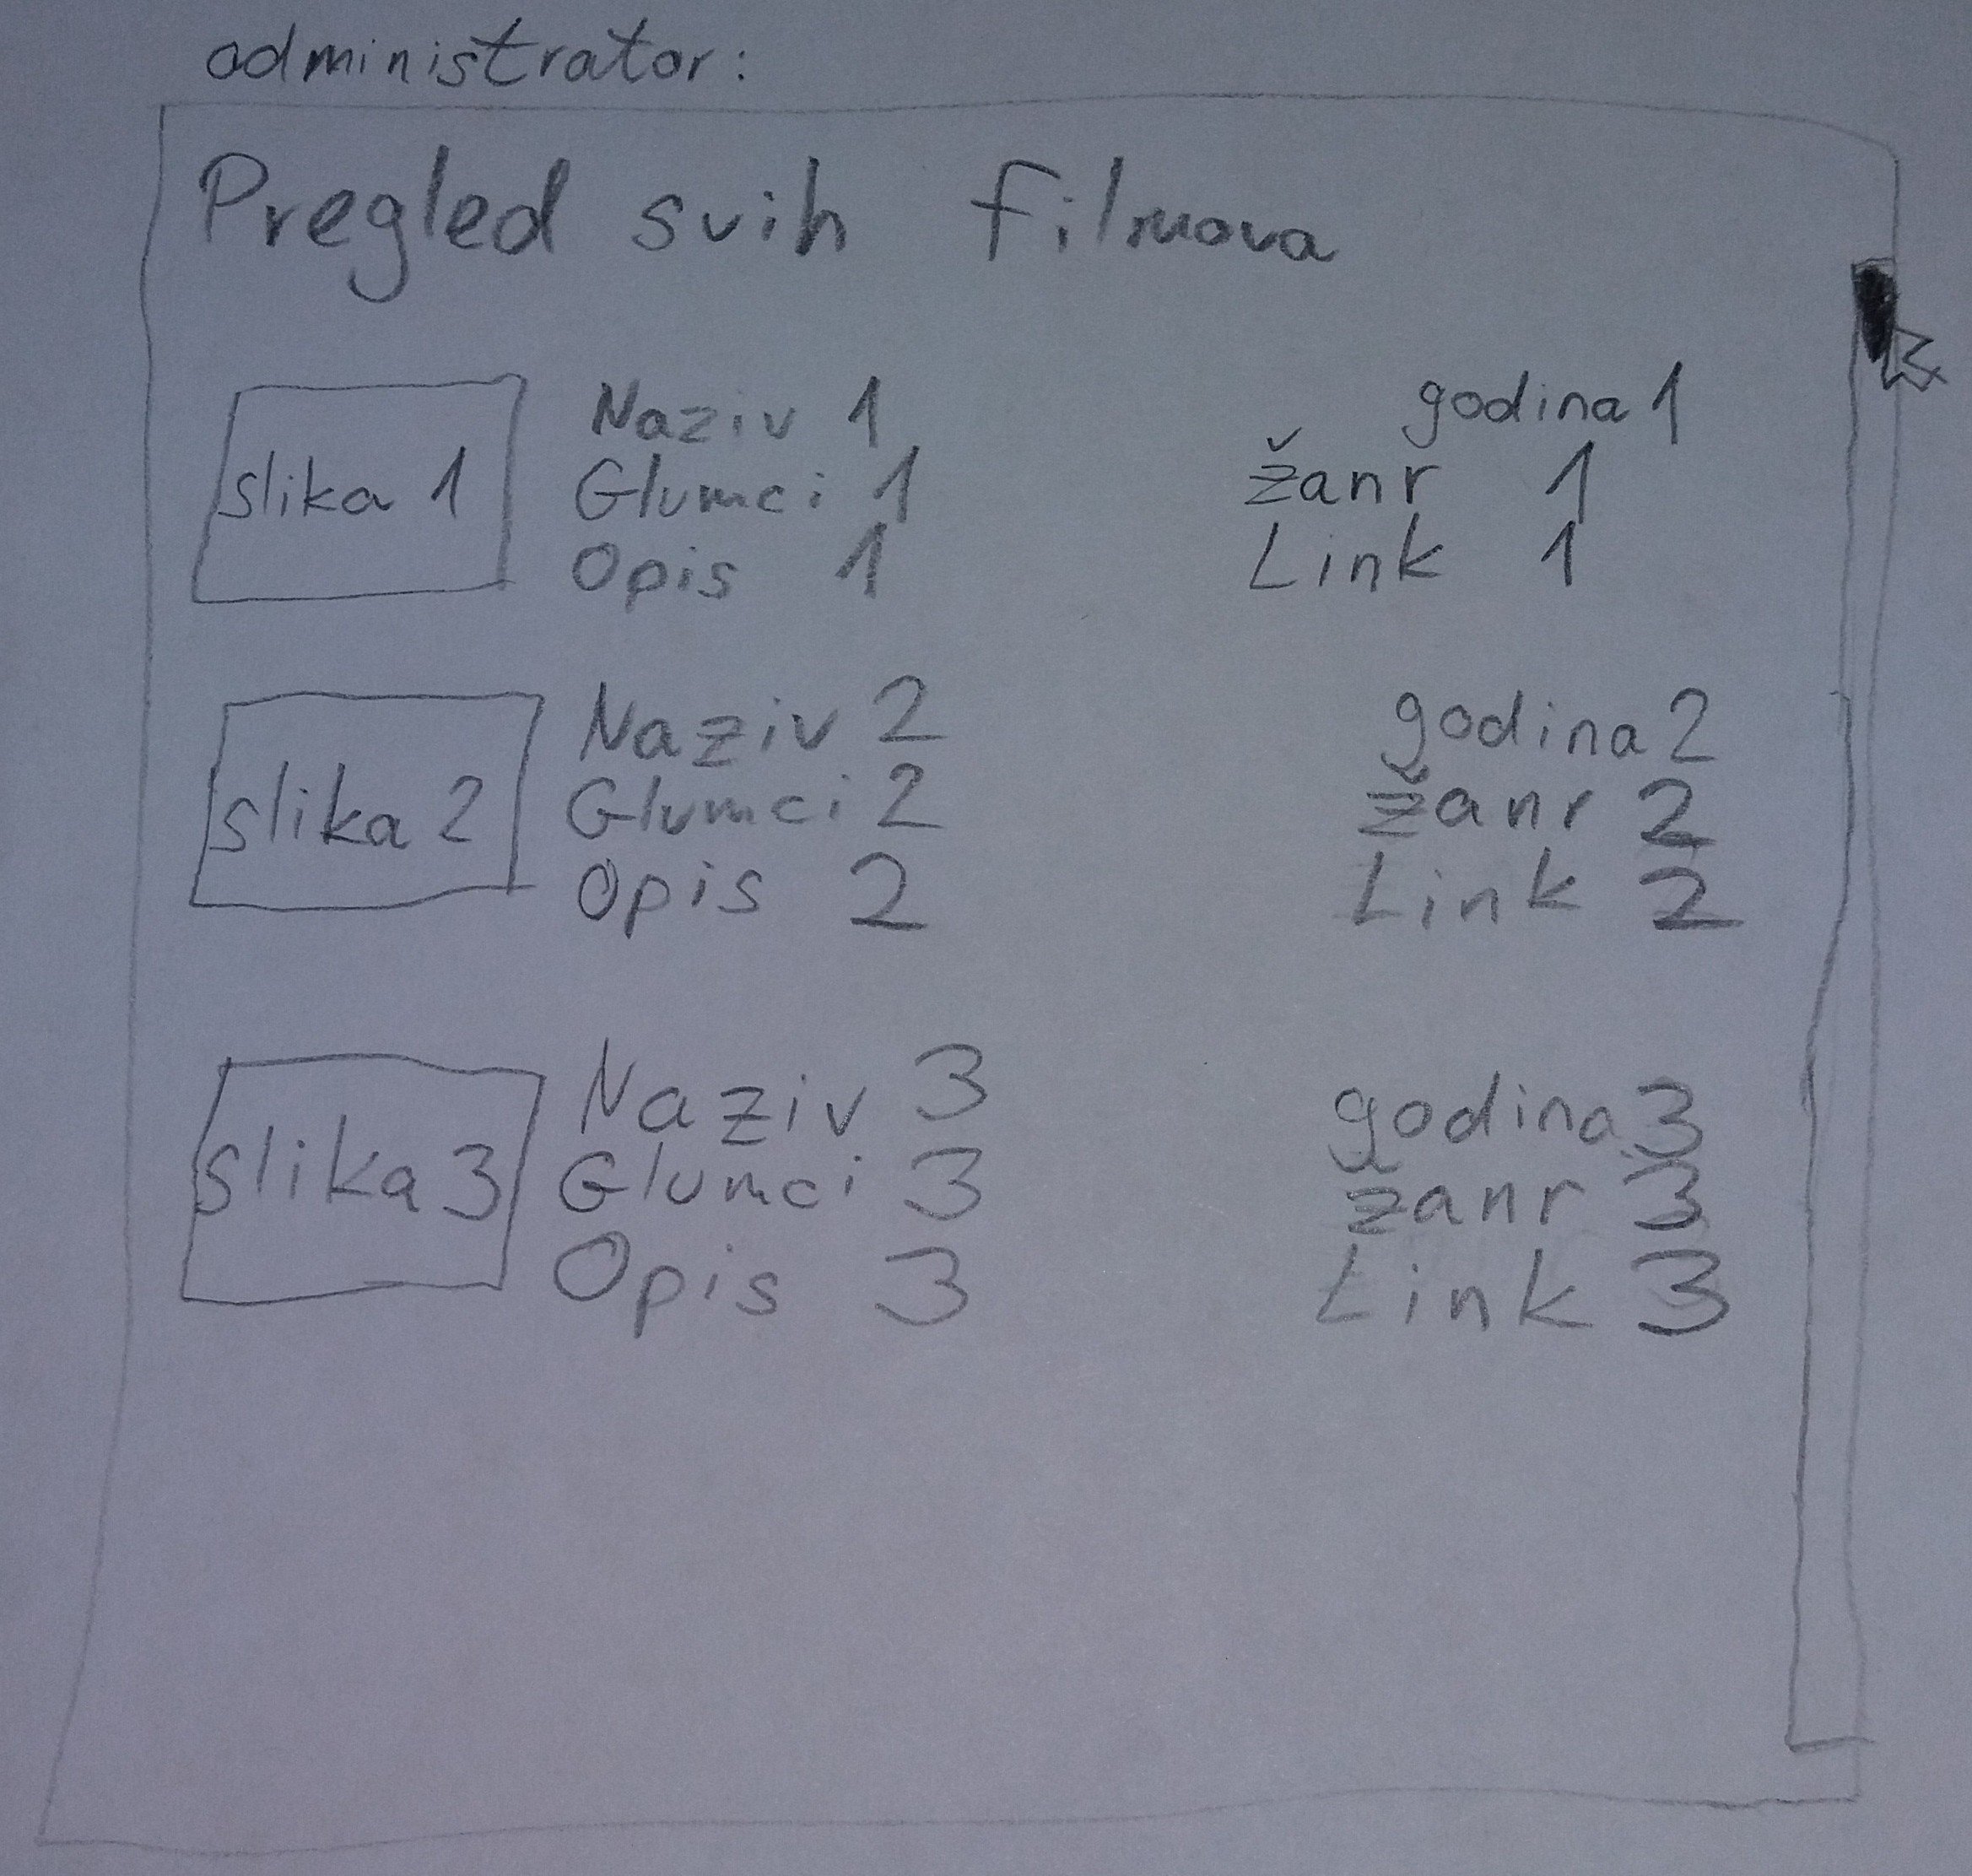 administrator:
Pregled svih filmova
slika 1
Naziv 1
Glumci 1
Opis 1
godina 1
žanr 1
Link 1
slika 2
Naziv 2
Glumci 2
Opis 2
godina 2
žanr 2
Link 2
slika 3
Naziv 3
Glumci 3
Opis 3
godina 3
žanr 3
Link 3